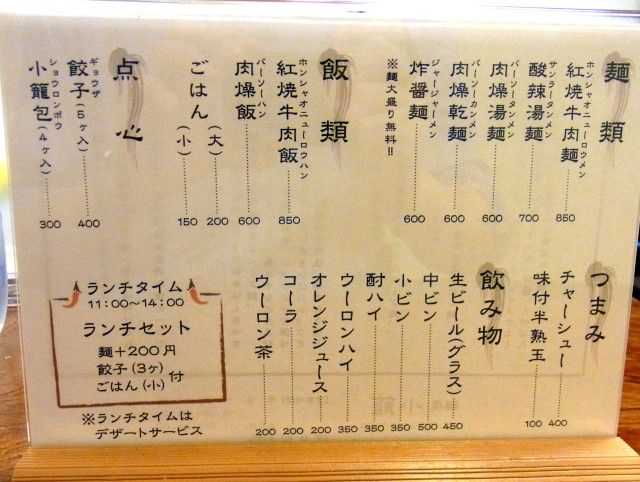 麺類
ホンシャオニューロウメン
紅焼牛肉麺 850
サンラータンメン
酸辣湯麺 700
バーソータンメン
肉燥湯麺 600
バーソーカンメン
肉燥乾麺 600
ジャージャーメン
炸醤麺 600
※麺大盛り無料!!
飯類
ホンシャオニューロウハン
紅焼牛肉飯 850
バーソーハン
肉燥飯 600
ごはん(大) 200
(小) 150
点心
ギョウザ
餃子(5ヶ入) 400
ショウロンポウ
小籠包(4ヶ入) 300
つまみ
チャーシュー 400
味付半熟玉 100
飲み物
生ビール(グラス) 450
中ビン 500
小ビン 350
酎ハイ 350
ウーロンハイ 350
オレンジジュース 200
コーラ 200
ウーロン茶 200
ランチタイム
11:00〜14:00
ランチセット
麺+200円
餃子(3ヶ)
ごはん(小)付
※ランチタイムは
デザートサービス